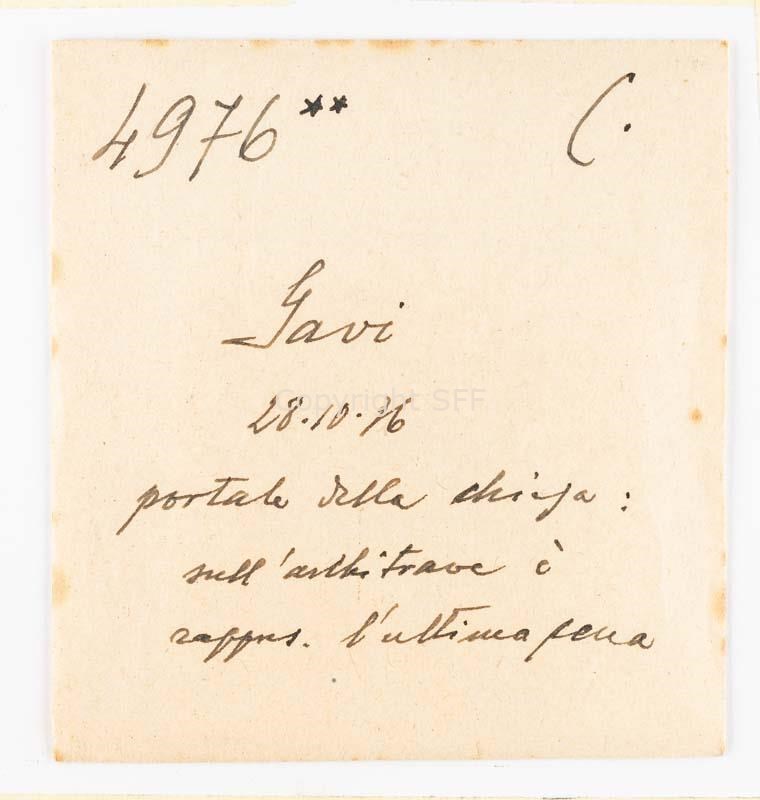 4976** C.
Gavi
Copyright SFF
28.10.76
portale della chiesa:
sull'architrave è
rappres. l'ultima cena